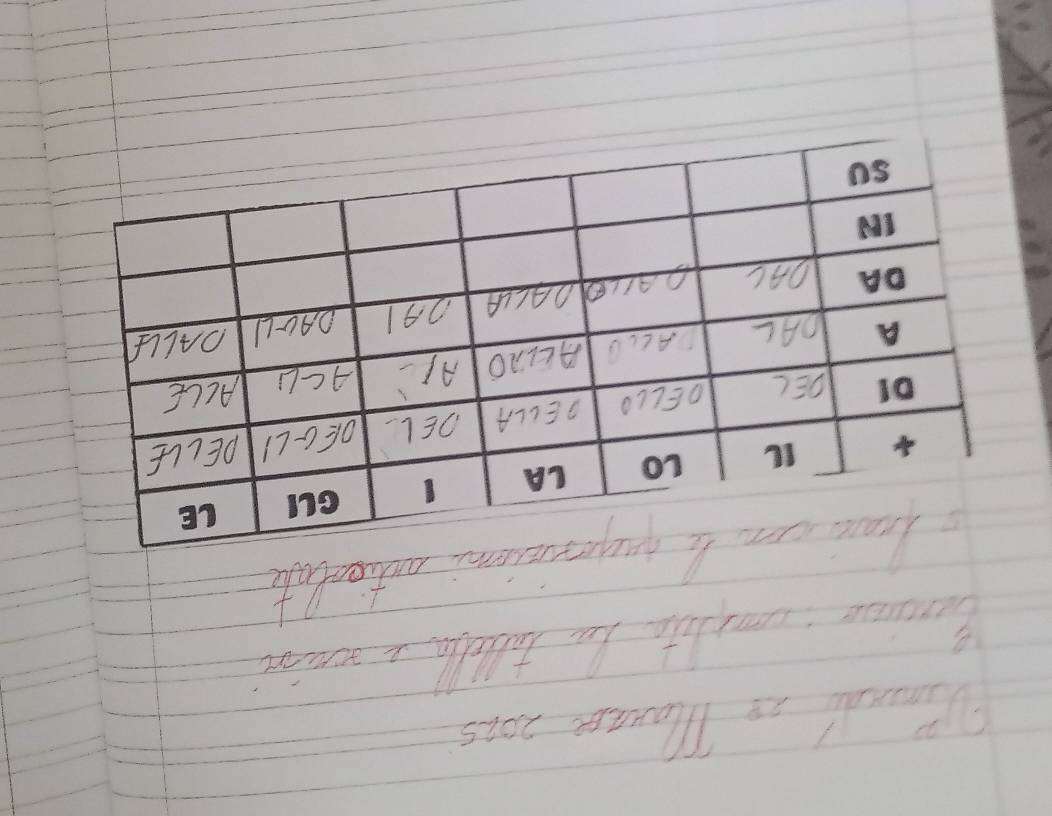 20 Marzo 2025
Esercizio: completa la tabella e scrivi
frasi con le preposizioni articolate
+ IL LO LA I GLI LE
DI DEL DELLO DELLA DEL DEGLI DELLE
A DAL DALLO ALLO AL ALLI ALLE
DA DAL DALLO DALLA DAI DAGLI DALLE
IN
SU